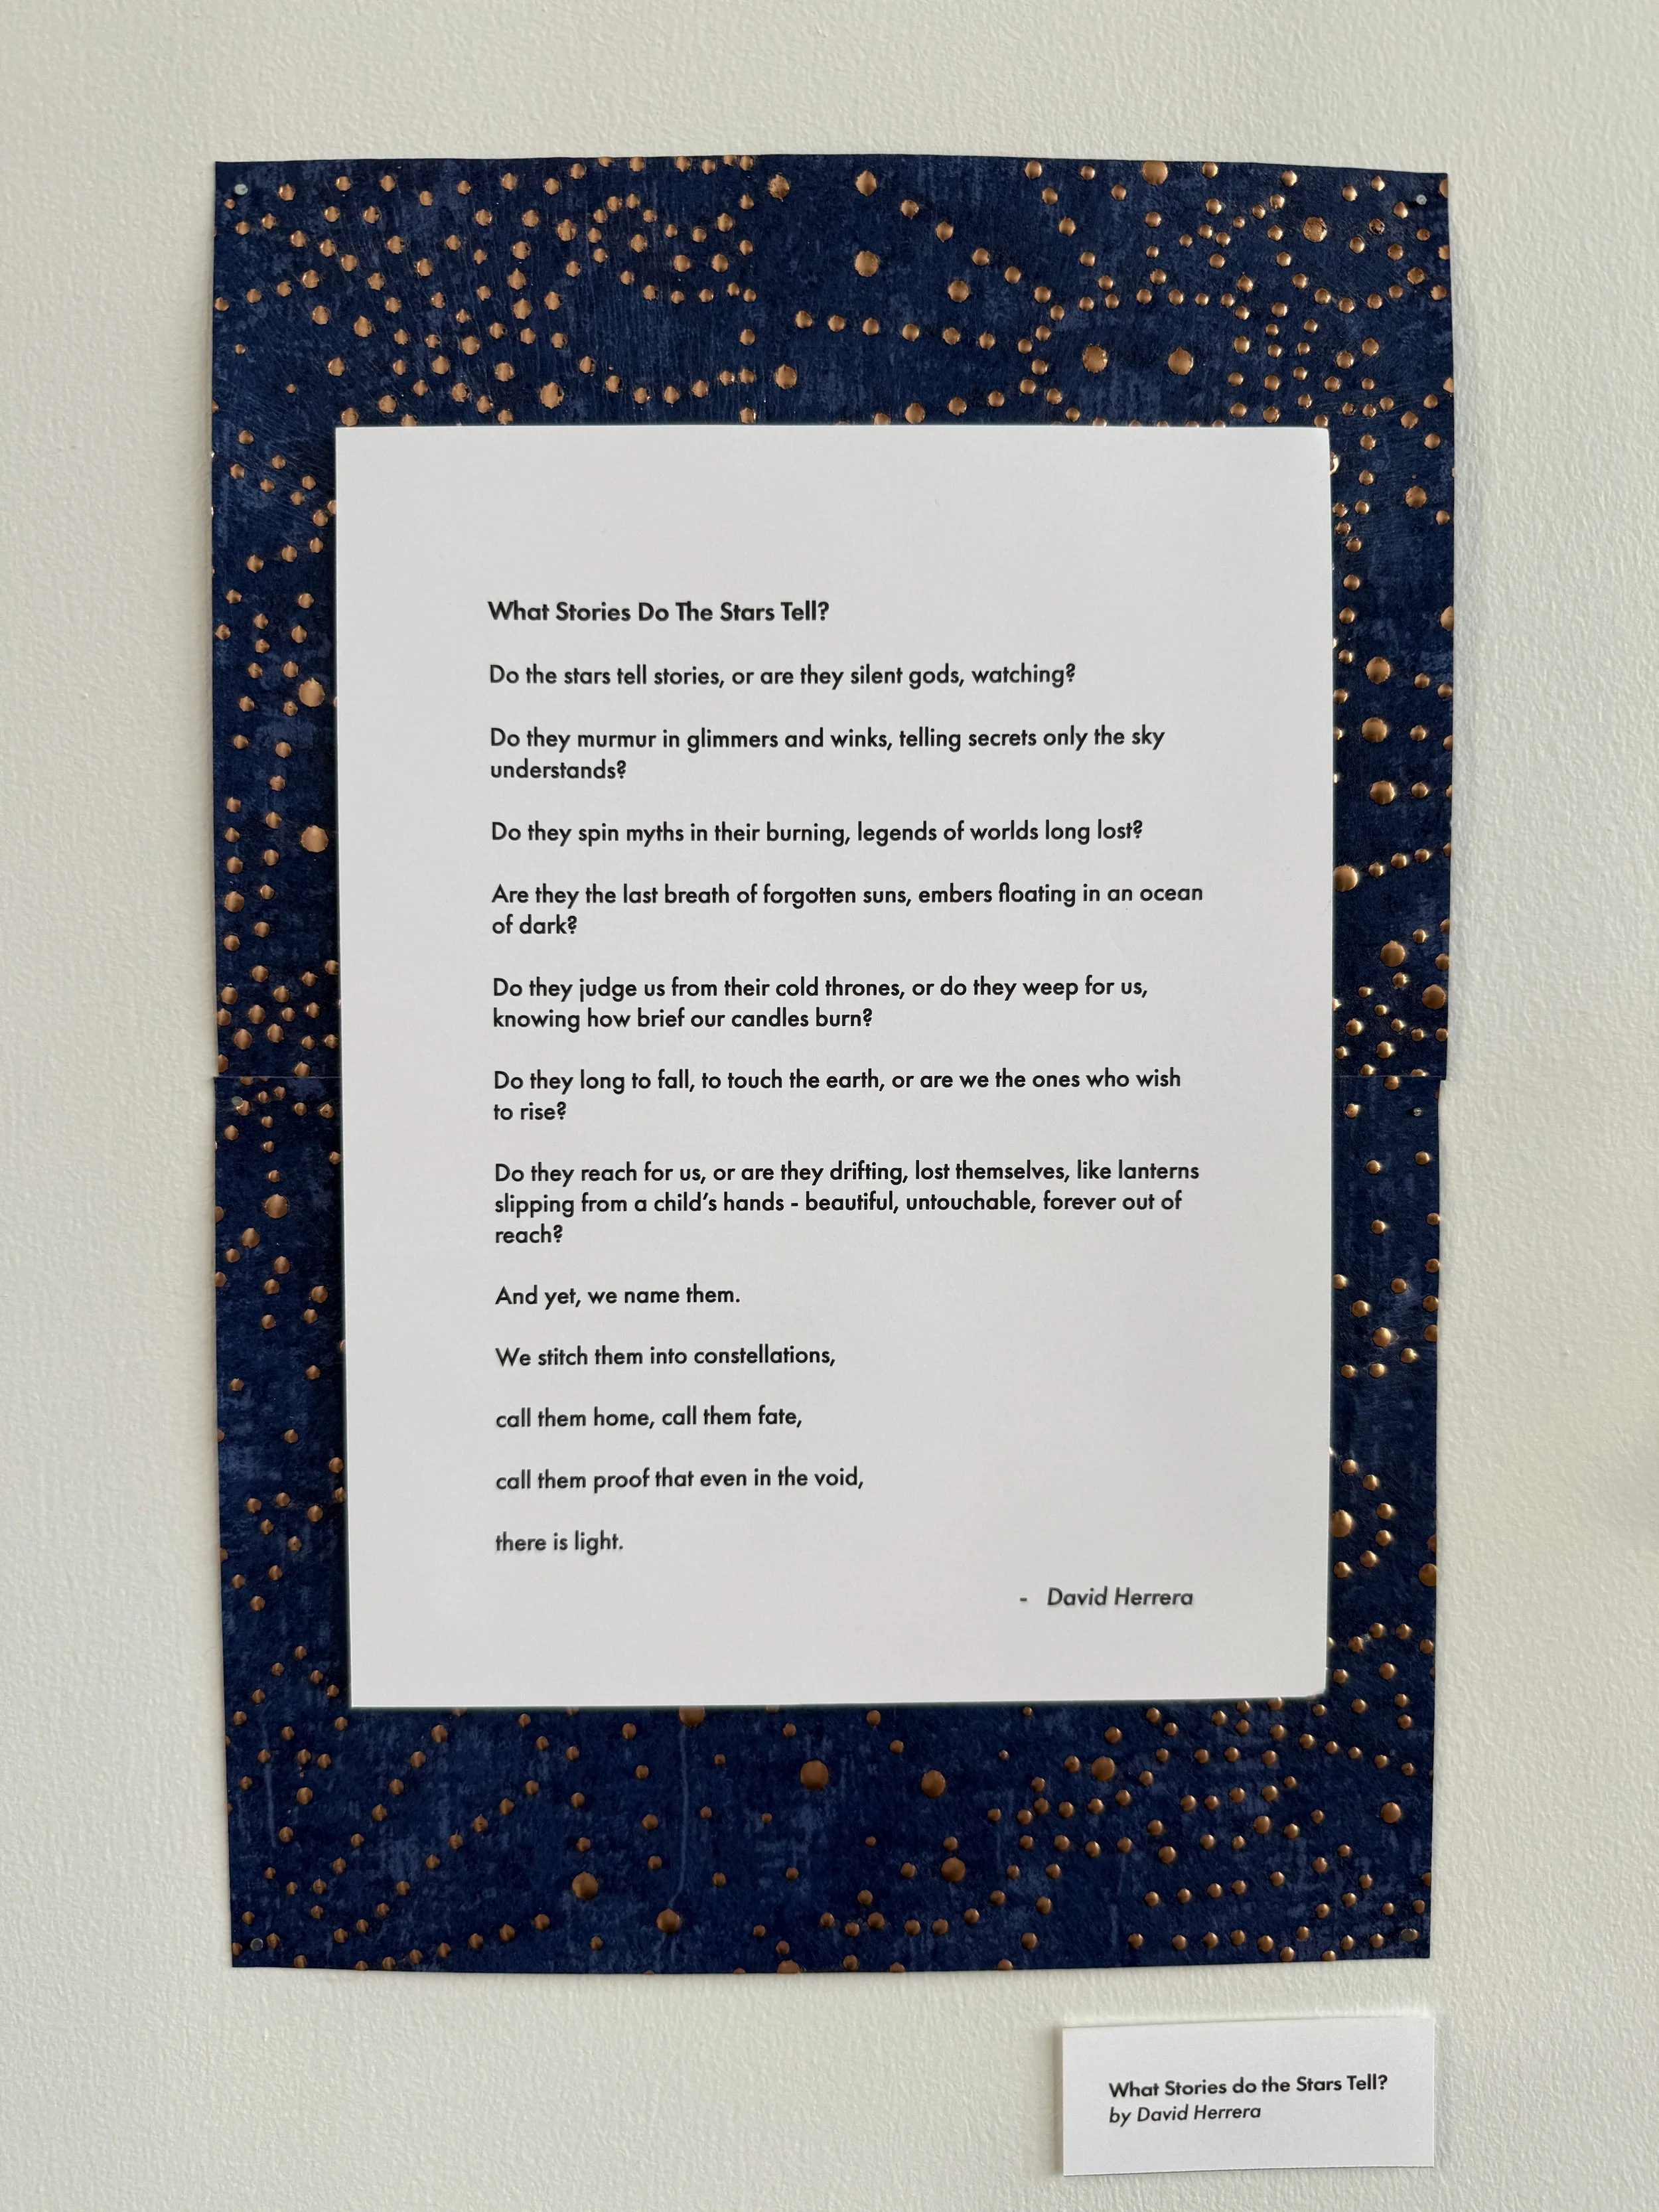 What Stories Do The Stars Tell?
Do the stars tell stories, or are they silent gods, watching?
Do they murmur in glimmers and winks, telling secrets only the sky
understands?
Do they spin myths in their burning, legends of worlds long lost?
Are they the last breath of forgotten suns, embers floating in an ocean
of dark?
Do they judge us from their cold thrones, or do they weep for us,
knowing how brief our candles burn?
Do they long to fall, to touch the earth, or are we the ones who wish
to rise?
Do they reach for us, or are they drifting, lost themselves, like lanterns
slipping from a child’s hands - beautiful, untouchable, forever out of
reach?
And yet, we name them.
We stitch them into constellations,
call them home, call them fate,
call them proof that even in the void,
there is light.
- David Herrera
What Stories do the Stars Tell?
by David Herrera